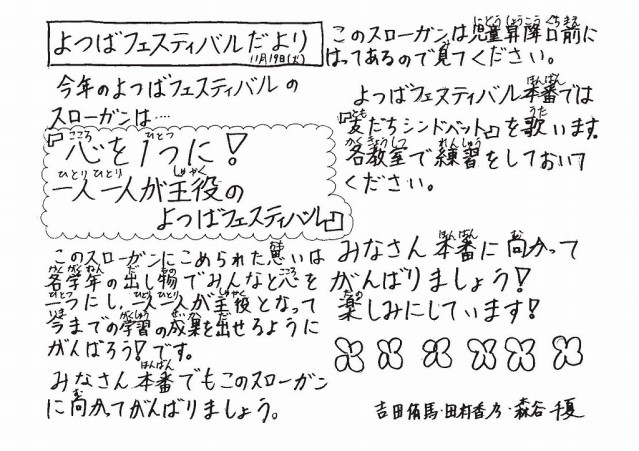 よつばフェスティバルだより
11月19日(火)
今年のよつばフェスティバルの
スローガンは…
『心を1つに!
一人一人が主役の
よつばフェスティバル』
このスローガンにこめられた思いは
各学年の出し物でみんなと心を
一つにし、一人一人が主役となって
今までの学習の成果を出せるように
がんばろう!です。
みなさん本番でもこのスローガン
に向かってがんばりましょう。
このスローガンは児童昇降口前に
はってあるので見てください。
よつばフェスティバル本番では
『友だちシンドバット』を歌います。
各教室で練習をしておいて
ください。
みなさん本番に向かって
がんばりましょう!
楽しみにしています!
吉田侑馬・田村香乃・森谷千夏